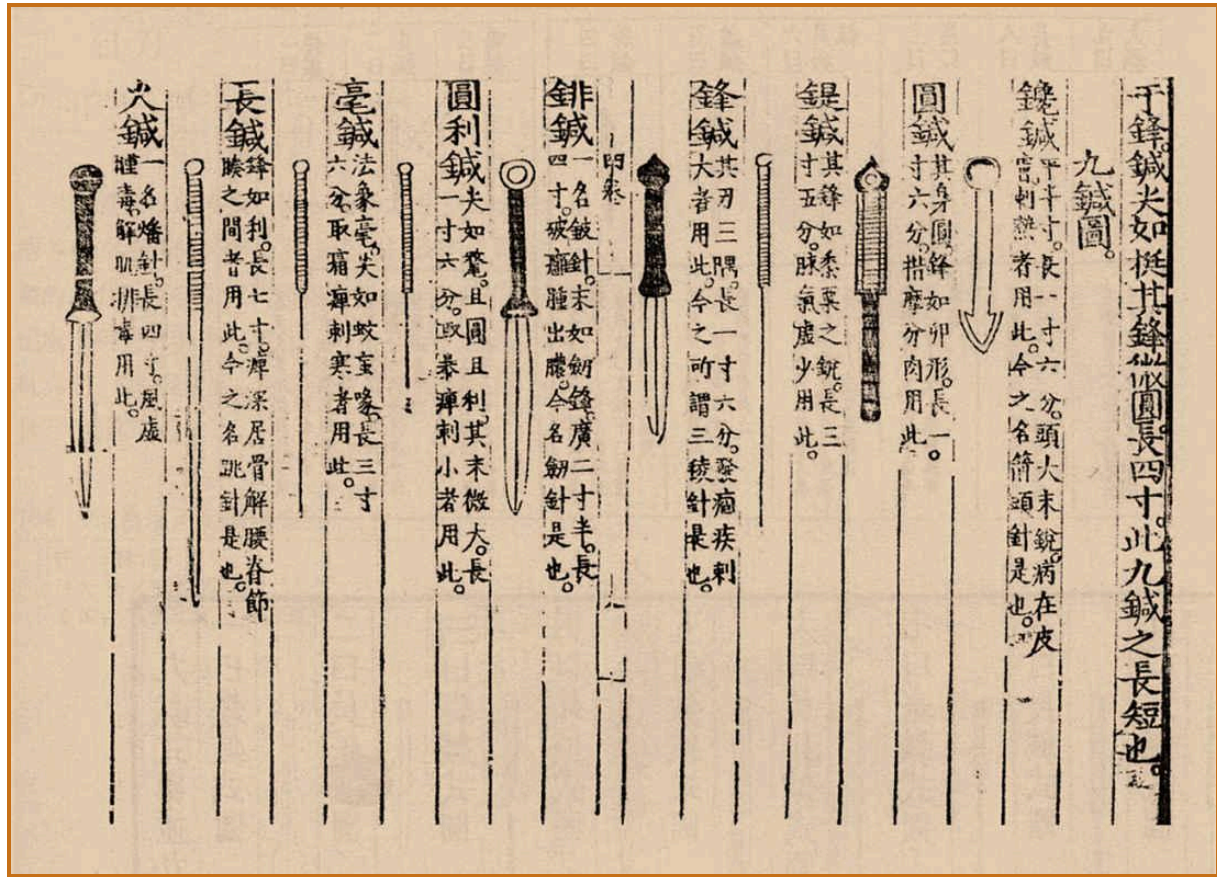 于鋒。鍼尖如挺其鋒微圓。長四寸。此九鍼之長短也。
九鍼圖。
鑱鍼
平半寸。長一寸六分。頭大末銳。病在皮
膚刺熱者用此。今之名箭頭針是也。
圓鍼
其身圓。鋒如卵形。長一
寸六分。揩摩分肉用此。
鍉鍼
其鋒如黍粟之銳。長三
寸五分。脉氣虛少用此。
鋒鍼
其刃三隅。長一寸六分。發痼疾刺
大者用此。今之所謂三稜針是也。
鍼
一名鈹針。末如劒鋒。廣二寸半。長
四寸。破癰腫出膿。今名劒針是也。
圓利鍼
尖如氂。且圓且利。其末微大。長
一寸六分。取暴痺刺小者用此。
毫鍼
法象毫。尖如蚊䖟喙。長三寸
六分。取痛痺刺寒者用此。
長鍼
鋒如利。長七寸。痺深居骨解腰脊節
腠之間者用此。今之名跳針是也。
火鍼
一名燔針。長四寸。風虛
腫毒。解肌排毒用此。